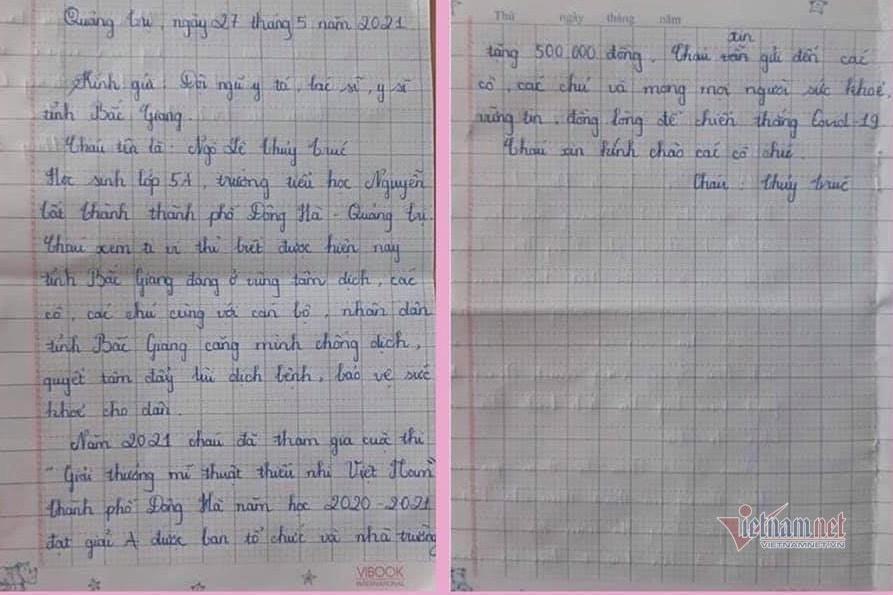 Quảng Trị, ngày 27 tháng 5 năm 2021
Kính gửi: Đội ngũ y tá, bác sĩ, y sĩ
tỉnh Bắc Giang.
Cháu tên là: Ngô Lê Thủy Trúc
Học sinh lớp 5A, trường tiểu học Nguyễn
Tất Thành thành phố Đông Hà - Quảng Trị.
Cháu xem ti vi thì biết được hiện nay
tỉnh Bắc Giang đang ở vùng tâm dịch, các
cô, các chú cùng với cán bộ, nhân dân
tỉnh Bắc Giang căng mình chống dịch,
quyết tâm đẩy lùi dịch bệnh, bảo vệ sức
khoẻ cho dân.
Năm 2021 cháu đã tham gia cuộc thi
"Giải thưởng mĩ thuật thiếu nhi Việt Nam"
thành phố Đông Hà năm học 2020-2021
đạt giải A được ban tổ chức và nhà trường
VIBOOK
INTERNATIONAL
Thứ ngày tháng năm
xin
tặng 500.000 đồng. Cháu gửi đến các
cô, các chú và mong mọi người sức khoẻ,
vững tin, đồng lòng để chiến thắng Covid-19
Cháu xin kính chào các cô chú.
Cháu: Thủy Trúc
vietnamnet
VIETNAMNET.VN